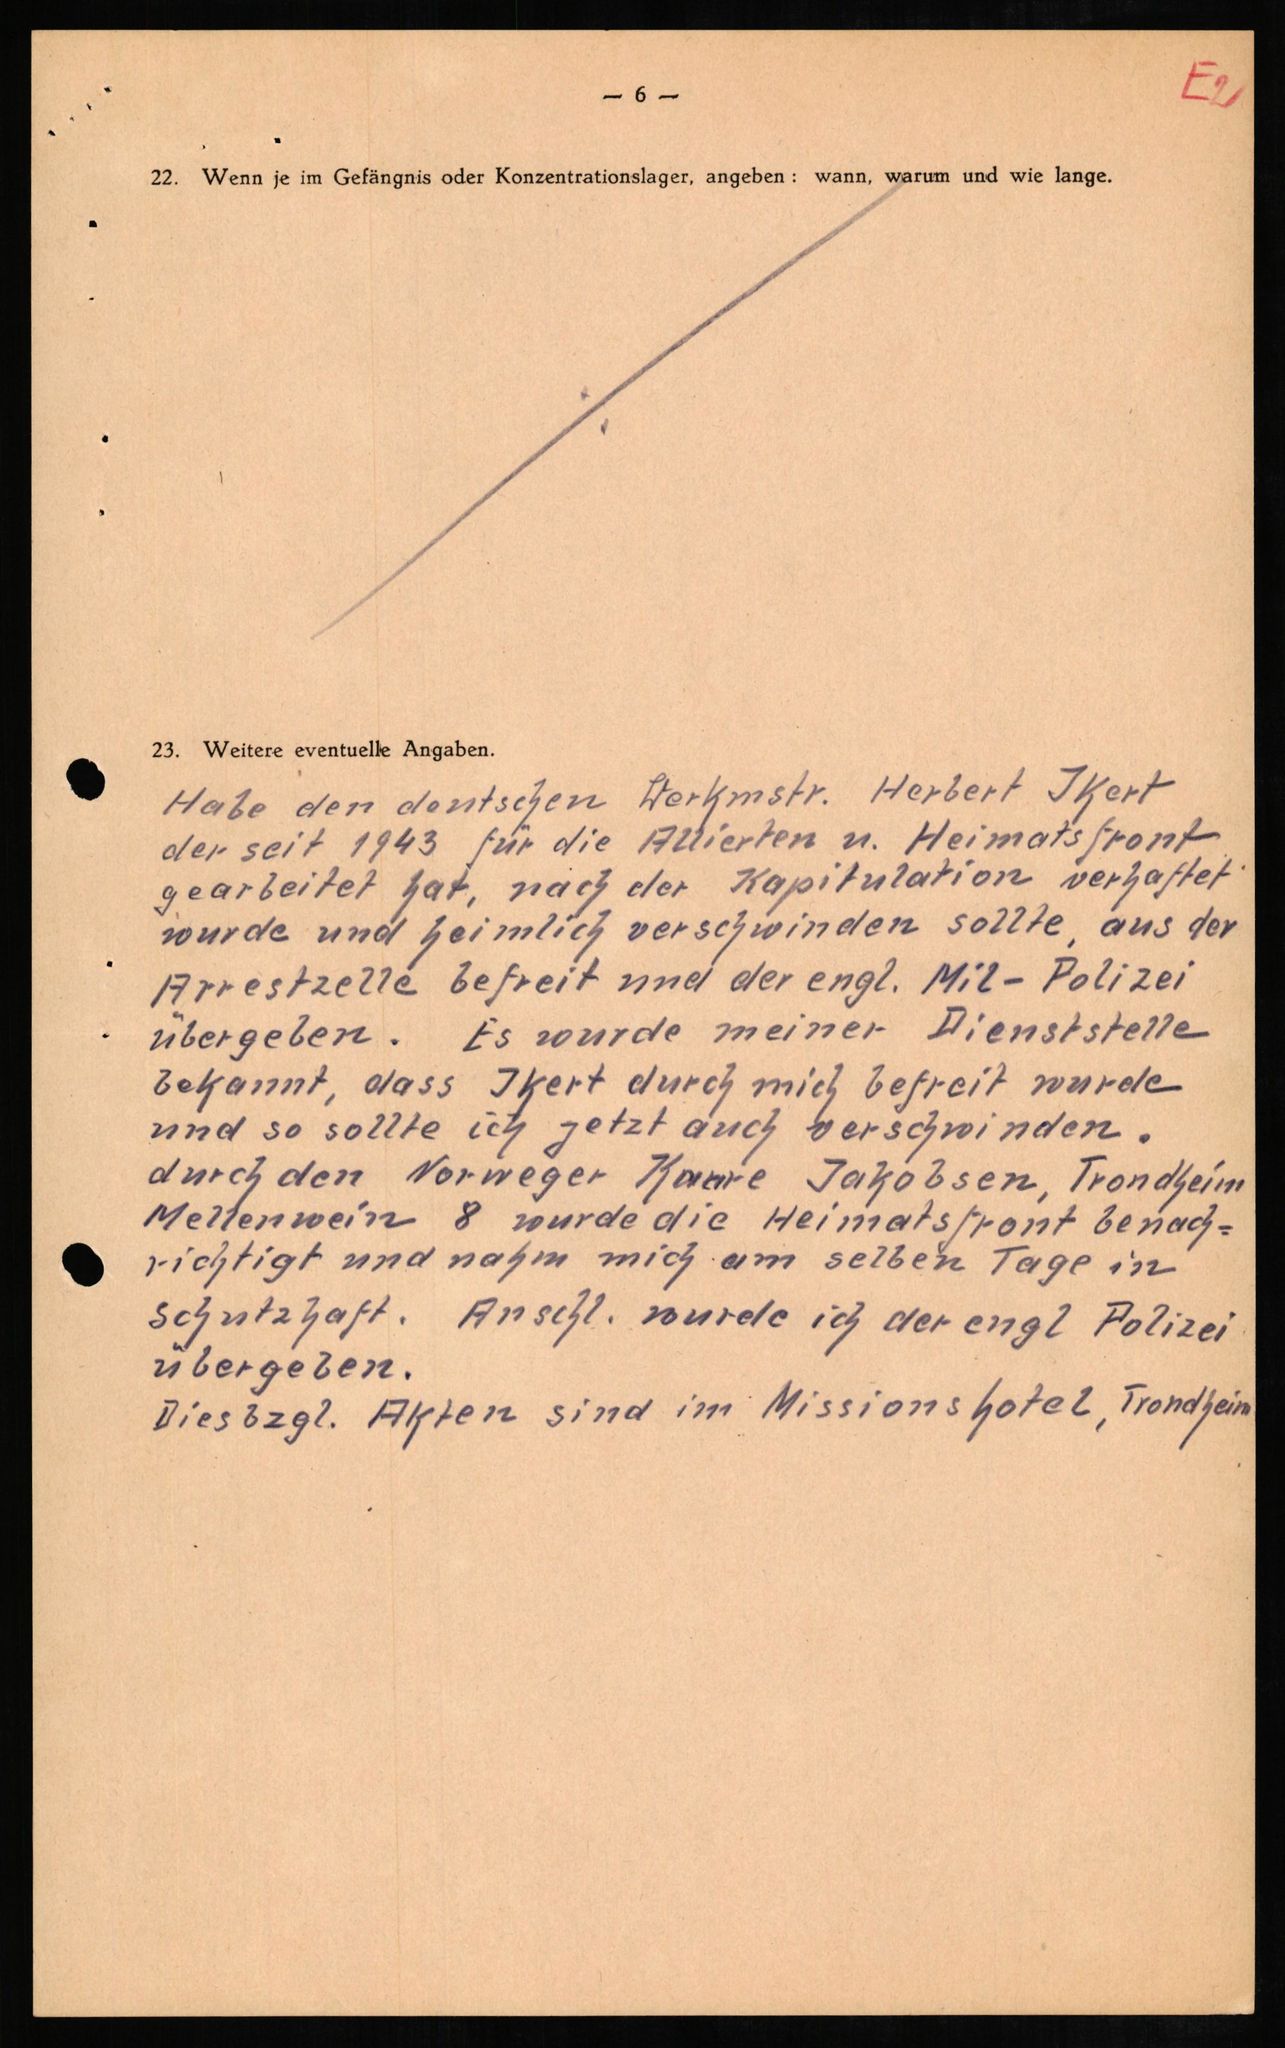 — 6 —
E2
22. Wenn je im Gefängnis oder Konzentrationslager, angeben: wann, warum und wie lange.
23. Weitere eventuelle Angaben.
Habe den deutschen Werkmstr. Herbert Ikert
der seit 1943 für die Allierten u. Heimatsfront
gearbeitet hat, nach der Kapitulation verhaftet
wurde und heimlich verschwinden sollte, aus der
Arrestzelle befreit und der engl. Mil- Polizei
übergeben. Es wurde meiner Dienststelle
bekannt, dass Ikert durch mich befreit wurde
und so sollte ich jetzt auch verschwinden.
durch den Norweger Kaare Jakobsen, Trondheim
Mellenwein 8 wurde die Heimatsfront benach=
richtigt und nahm mich am selben Tage in
Schutzhaft. Anschl. wurde ich der engl Polizei
übergeben.
Diesbzgl. Akten sind im Missionshotel, Trondheim